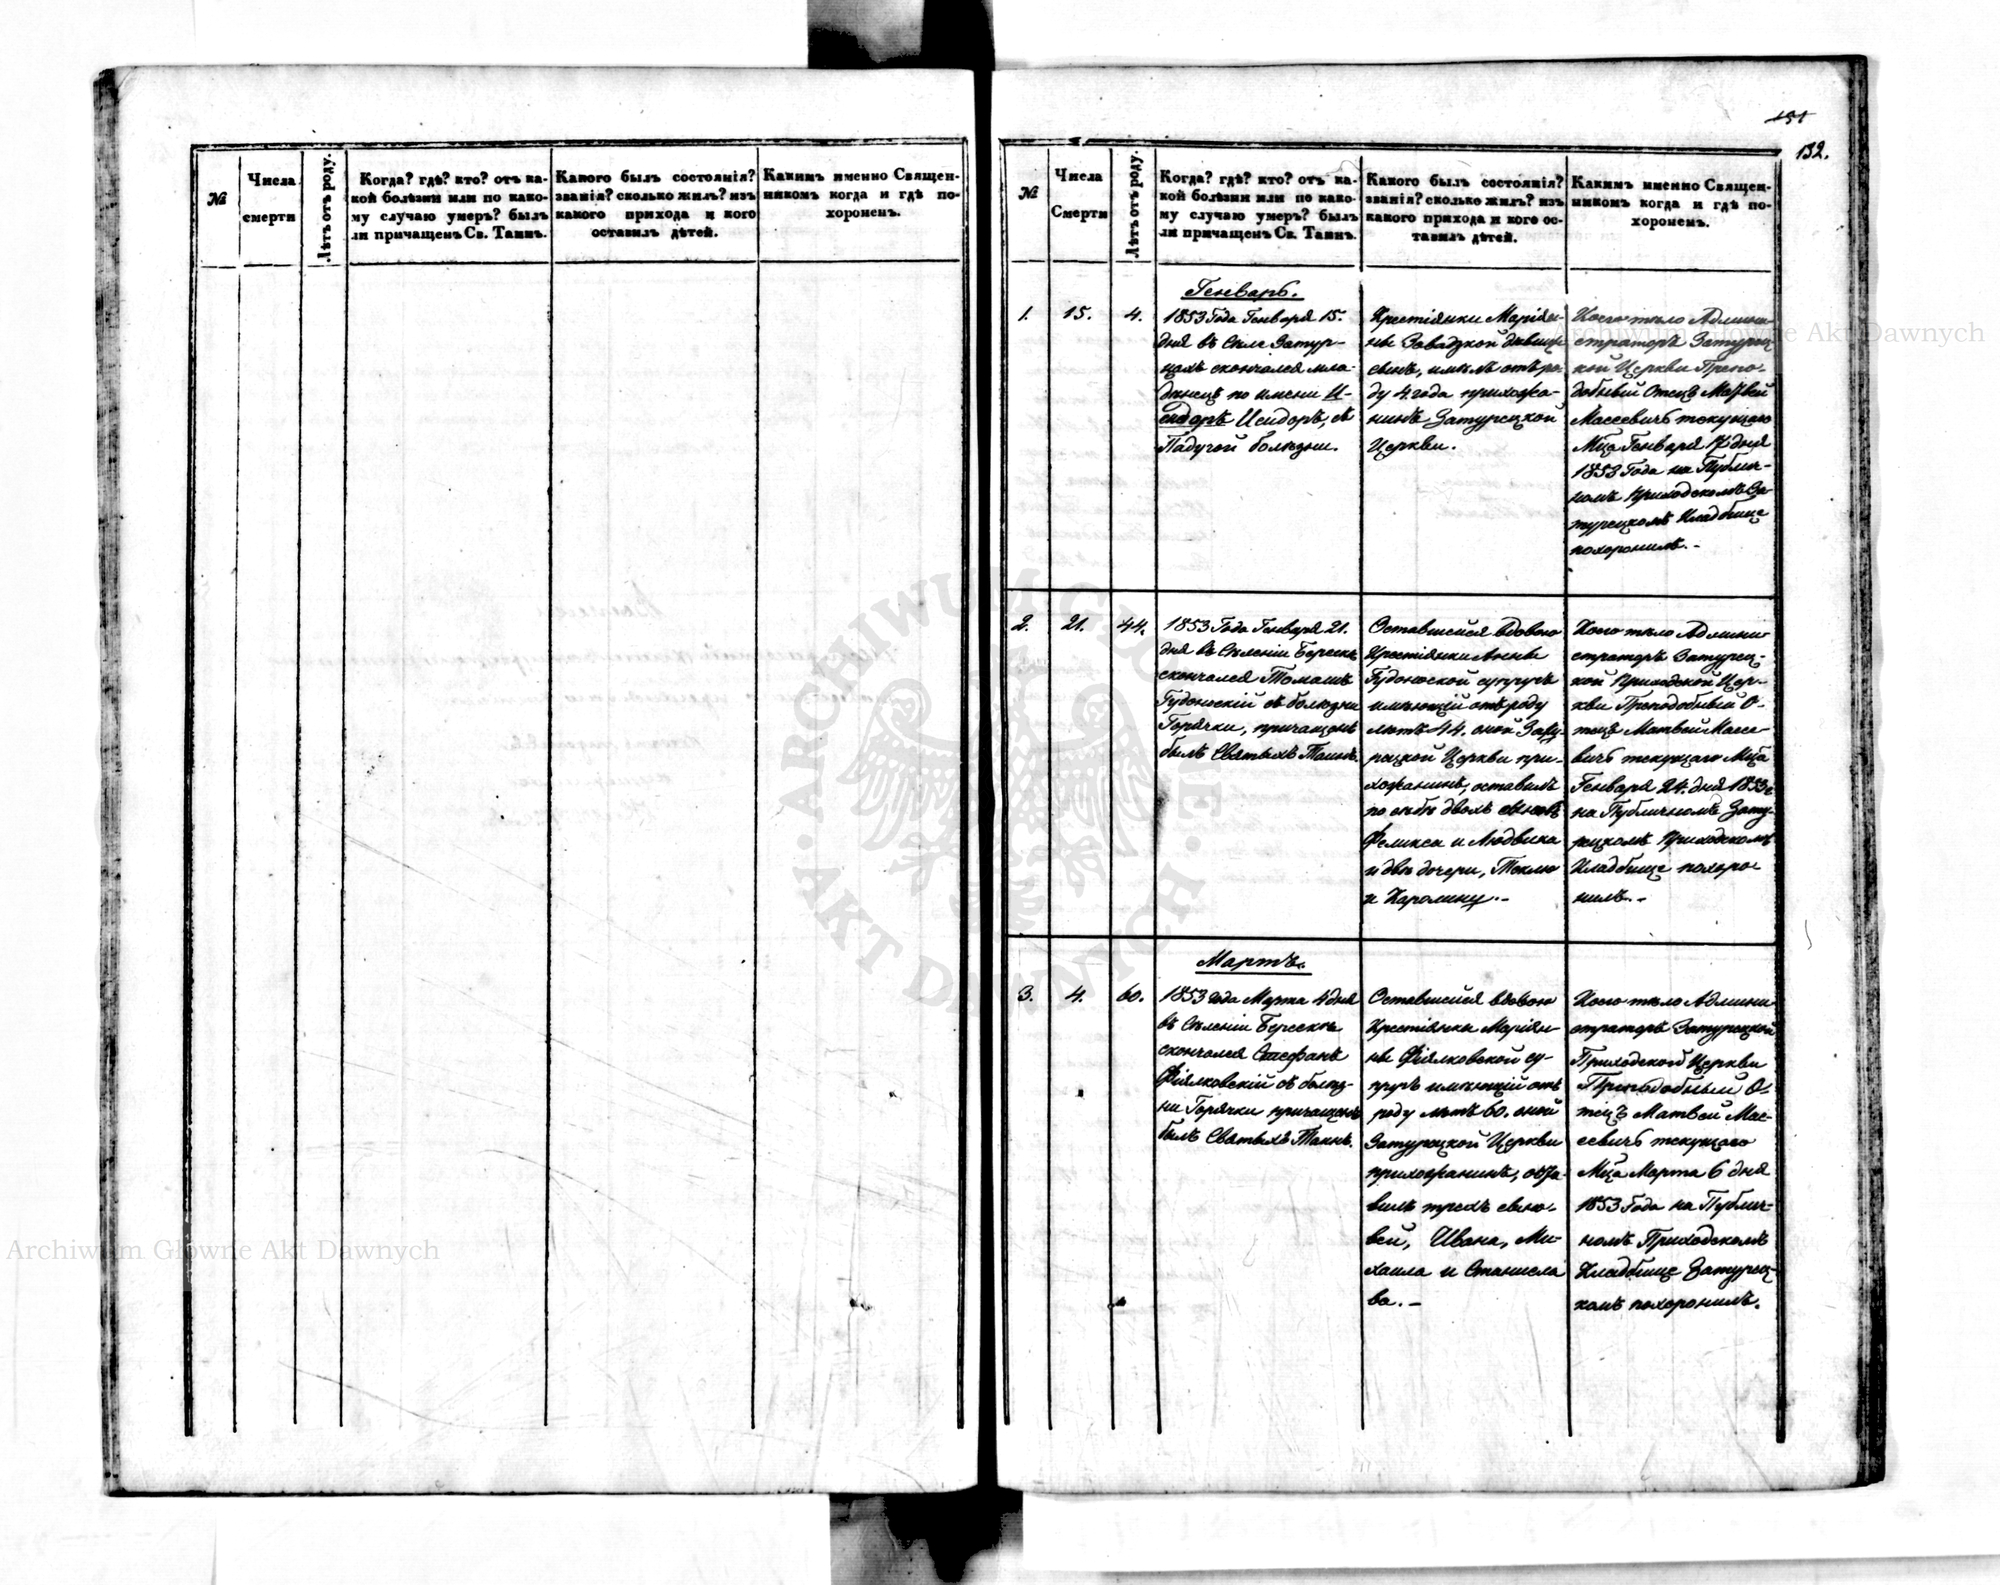 151
132.
№
Числа
смерти
Лѣтъ отъ роду.
Когда? гдѣ? кто? отъ ка-
кой болѣзни или по како-
му случаю умеръ? былъ
ли причащенъ Св. Таинъ.
Какого былъ состоянія?
званія? сколько жилъ? изъ
какого прихода и кого
оставилъ дѣтей.
Какимъ именно Священ-
никомъ когда и гдѣ по-
хороненъ.
№
Числа
Смерти
Лѣтъ отъ роду.
Когда? гдѣ? кто? отъ ка-
кой болѣзни или по како-
му случаю умеръ? былъ
ли причащенъ Св. Таинъ.
Какого былъ состоянія?
званія? сколько жилъ? изъ
какого прихода и кого ос-
тавилъ дѣтей.
Какимъ именно Священ-
никомъ когда и гдѣ по-
хороненъ.
Генварь.
1.
15.
4.
1853 Года Генваря 15.
дня въ Селе Затур-
цахъ скончался мла-
денецъ по имени И-
сидоръ Исидоръ, съ
Падучой болѣзни.
Крестіянки Маріян-
ны Завадзкой бывшій
сынъ, имѣлъ отъ ро-
ду 4 года прихожа-
нинъ Затурецкой
Церкви.
Коего тѣло Админи-
страторъ Затурец-
кой Церкви Препо-
добный Отецъ Матвей
Массевичъ текущаго
Мца Генваря 17 дня
1853 Года на Публич-
номъ Приходскомъ За-
турецкомъ Кладбище
похоронилъ.-
2.
21.
44.
1853 Года Генваря 21.
дня въ Селеніи Береске
скончался Томашъ
Гудоноскій съ болѣзни
Горячки, причащенъ
былъ Святыхъ Таинъ.
Оставшейся вдовою
Крестіянки Анны
Гудоноской супругъ
имѣющій отъ роду
лѣтъ 44. оной Зату-
рецкой Церкви при-
хожанинъ, оставилъ
по себѣ двохъ сыновъ
Феликса и Людвика
и двѣ дочери, Теклю
и Каролину.-
Коего тѣло Админи-
страторъ Затурец-
кой Приходской Цер-
кви Преподобный О-
тецъ Матвей Массе-
вичъ текущаго Мца
Генваря 24. дня 1853 г
на Публичномъ Зату-
рецкомъ Приходскомъ
Кладбище похоро-
нилъ.-
Мартъ.
3.
4.
60.
1853 года Марта 4 дня
въ Селеніи Береске
скончался Стефанъ
Фіялковскій съ болѣз-
ни Горячки причащенъ
былъ Святыхъ Таинъ.
Оставшейся вдовою
Крестіянки Маріян-
ны Фіялковской су-
пругъ имѣющій отъ
роду лѣтъ 60. оной
Затурецкой Церкви
прихожанинъ, оста-
вилъ трехъ сыно-
вей, Ивана, Ми-
хаила и Станисла
ва.-
Коего тѣло Админи
стратор Затурецкой
Приходской Церкви
Преподобный О-
тецъ Матвей Мас-
севичъ текущаго
Мца Марта 6 дня
1853 Года на Публич-
номъ Приходскомъ
Кладбище Затурец-
комъ похоронилъ.
Archiwum Główne Akt Dawnych
Archiwum Główne Akt Dawnych
ARCHIWUM GŁÓWNE AKT DAWNYCH